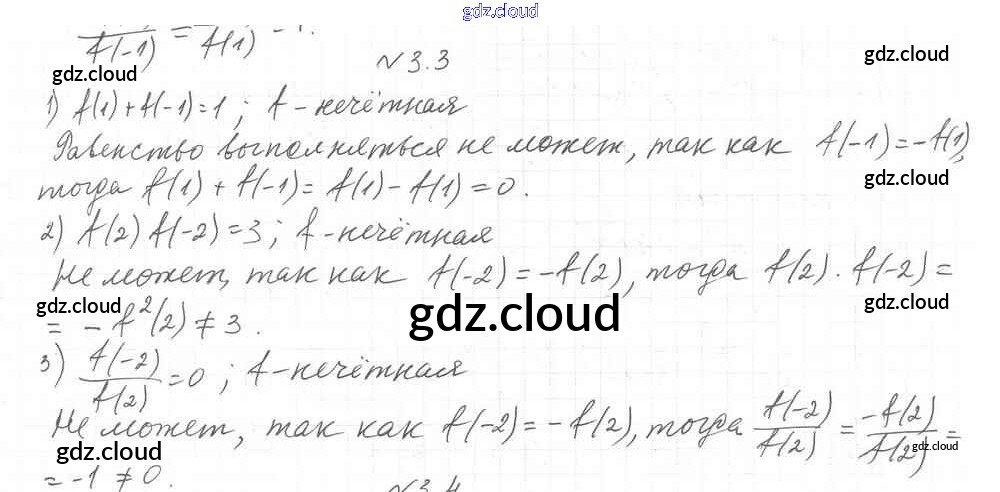 gdz.cloud
f(-1) = f(1) - 1.
№3.3
gdz.cloud
gdz.cloud
1) f(1) + f(-1) = 1 ; f - нечётная
Равенство выполняться не может, так как f(-1) = -f(1),
gdz.cloud
тогда f(1) + f(-1) = f(1) - f(1) = 0.
2) f(2) f(-2) = 3 ; f - нечётная
Не может, так как f(-2) = -f(2), тогда f(2) · f(-2) =
gdz.cloud
gdz.cloud
gdz.cloud
= -f²(2) ≠ 3.
3) f(-2)/f(2) = 0 ; f - нечётная
Не может, так как f(-2) = -f(2), тогда f(-2)/f(2) = -f(2)/f(2) =
gdz.cloud
gdz.cloud
= -1 ≠ 0.
№3.4